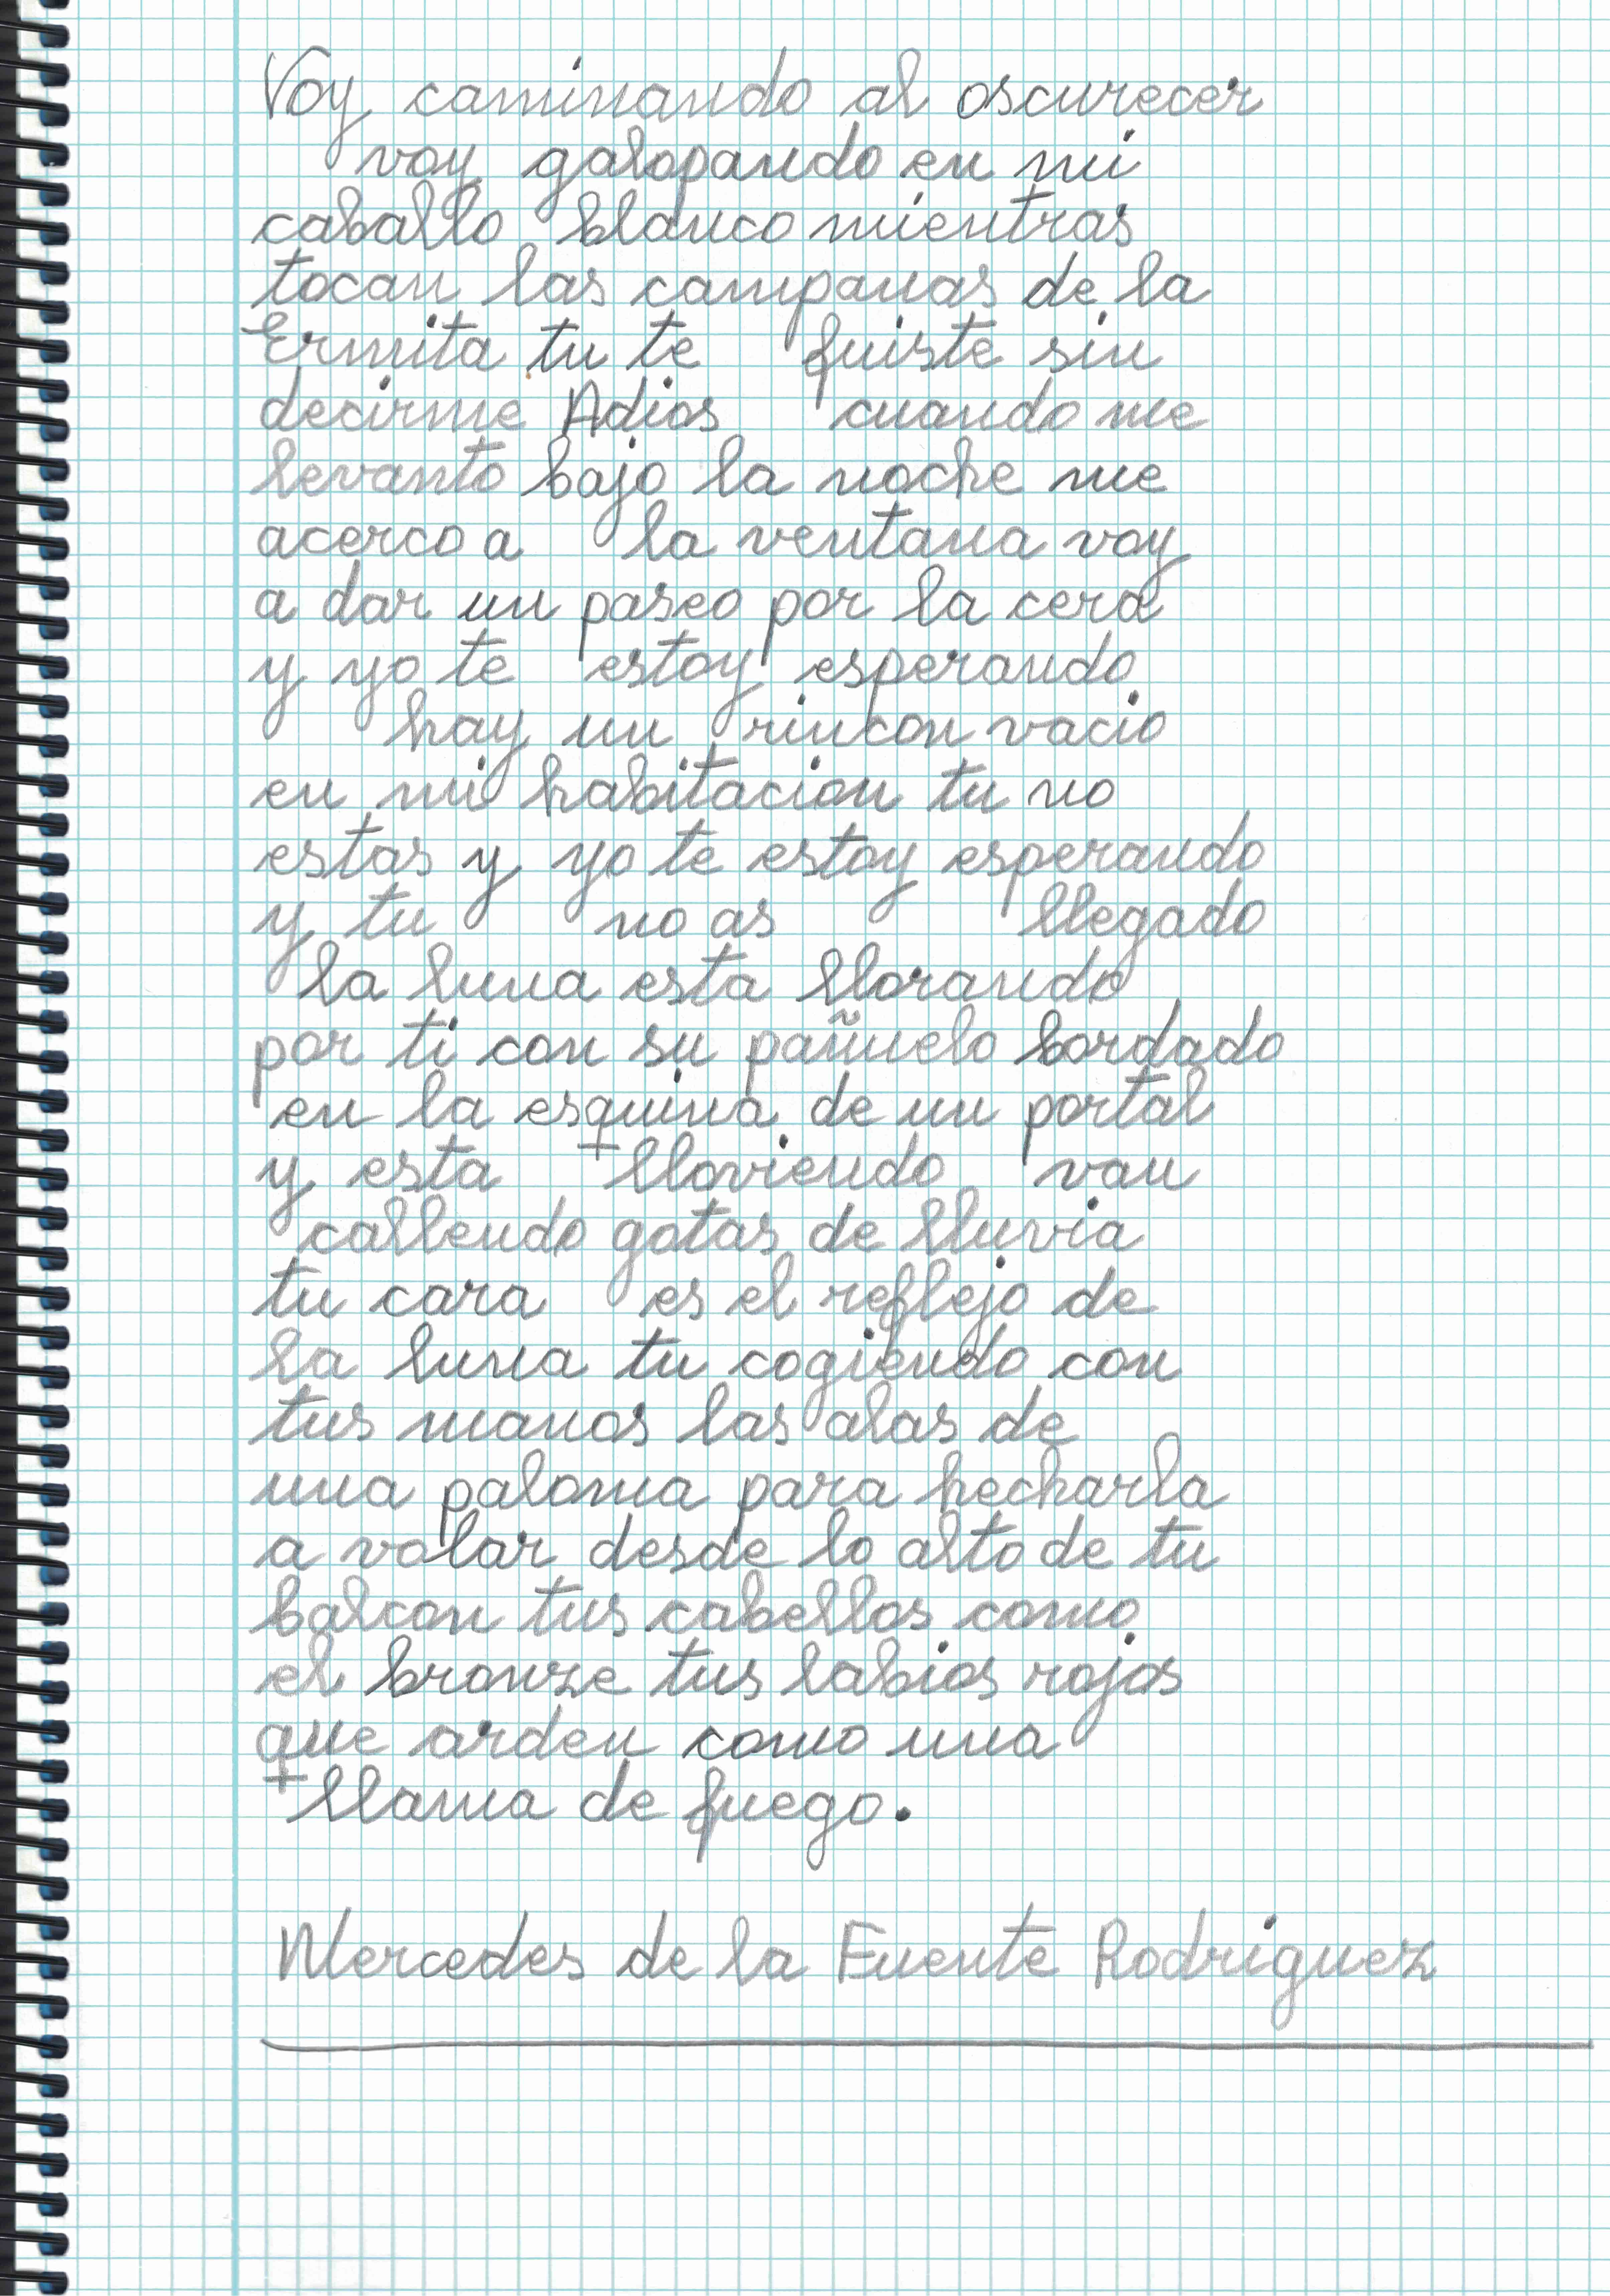 Voy caminando al oscurecer
voy galopando en mi
caballo blanco mientras
tocan las campanas de la
Ermita tu te fuiste sin
decirme Adios cuando me
levanto bajo la noche me
acerco a la ventana voy
a dar un paseo por la cera
y yo te estoy esperando
hay un rincon vacio
en mi habitacion tu no
estas y yo te estoy esperando
y tu no as llegado
la luna esta llorando
por ti con su pañuelo bordado
en la esquina de un portal
y esta lloviendo van
callendo gotas de lluvia
tu cara es el reflejo de
la luna tu cogiendo con
tus manos las alas de
una paloma para hecharla
a volar desde lo alto de tu
balcon tus cabellos como
el bronze tus labios rojos
que arden como una
llama de fuego.
Mercedes de la Fuente Rodriguez